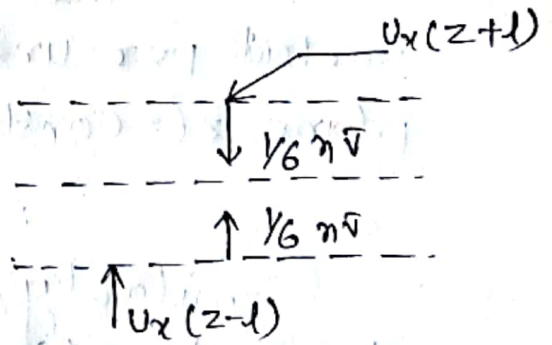 Ux (z+l)
1/6 n v̅
1/6 n v̅
Ux (z-l)